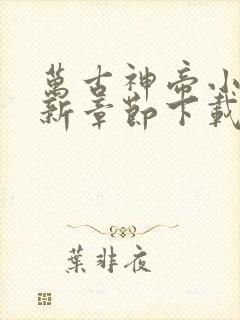 萬古神帝小
新章節下載
葉非夜